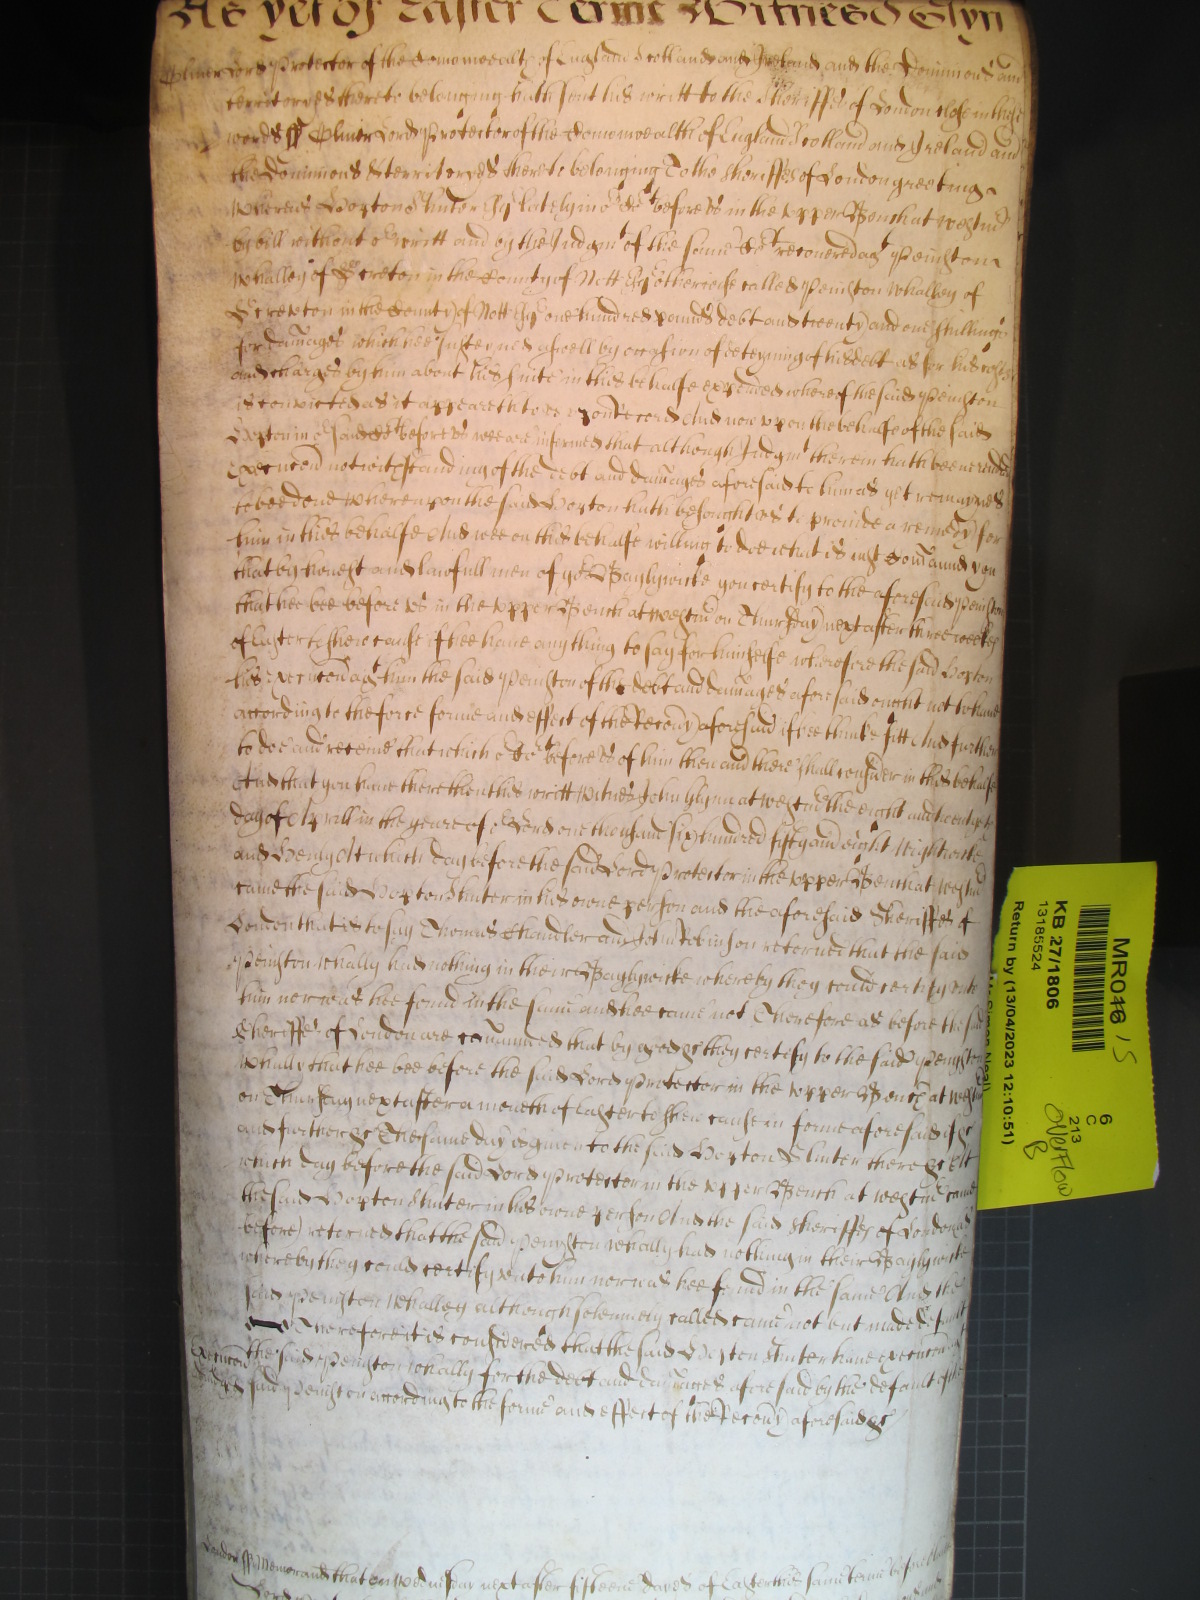 As yet of Easter Terme Witnes J Glyn
Oliver Lord Protector of the Comonwealth of England Scotland and Ireland and the Dominions and
territoryes thereto belonging hath sent his writt to the Sheriffes of London close in these
words ss Oliver Lord Protector of the Comonwealth of England Scotland and Ireland and
the Dominions & territoryes thereto belonging To the Sheriffes of London greeting
Whereas Horton Slinter Esq lately in or Cot before us in the upper Bench at westmr
by bill without or writt and by the Judgmt of the same Cot recovered agt Peniston
Whalley of Screton in the County of Nott Esq otherwise called Peniston Whalley of
Screveton in the County of Nott Esq one hundred pounds debt and twenty and one shillings
for damages which hee susteyned aswell by occasion of deteyning of his debt as for his costs
and charges by him about his suite in this behalfe expended whereof the said Peniston
is convicted as it appeareth to us upon Record And now upon the behalfe of the said
Horton in or said Cot before us wee are informed that although Judgmt therein hath beene rendred
Execucon notwithstanding of the debt and damages aforesaid to him as yet remaynes
to bee done whereupon the said Horton hath besought us to provide a remedy for
him in this behalfe And wee on this behalfe willing to doe what is just Comaund you
that by honest and lawfull men of yor Baylywicke you certify to the aforesaid Peniston
that hee bee before us in the upper Bench at westmr on Thursday next after three weekes
of Easter to shew cause if hee have any thing to say for himselfe wherefore the said Horton
his execucon agt him the said Peniston of the debt and damages aforesaid ought not to have
according to the force forme and effect of the Recovy aforesaid if hee thinke fitt And further
to doe and receive that which or Cot before us of him then and there shall consider in this behalfe
And that you have there then this writt Witnes John Glynn at westmr the eight and twentyeth
day of Aprill in the yeare of or Lord one thousand six hundred fifty and eight Wightwicke
and Henly At which day before the said Lord Protector in the upper Bench at westmr
came the said Horton Slinter in his owne person and the aforesaid Sheriffes of
London that is to say Thomas Chandler and John Robinson returned that the said
Peniston Whally had nothing in their Baylywicke whereby they could certify unto
him nor was hee found in the same and hee came not Therefore as before the said
Sheriffes of London are comaunded that by good &c they certify to the said Peniston
Whally that hee bee before the said Lord Protector in the upper Bench at westmr
on Thursday next after a moneth of Easter to shew cause in forme aforesaid if &c
and further &c The same day is given to the said Horton Slinter there &c At
which day before the said Lord Protector in the upper Bench at westmr came
the said Horton Slinter in his owne person And the said Sheriffes of London as
before returned that the said Peniston Whally had nothing in their Baylywicke
whereby they could certify unto him nor was hee found in the same And the
said Peniston Whalley although solemnely called came not but made default
Therefore it is considered that the said Horton Slinter have execucon agt
Execucon the said Peniston Whally for the debt and damages aforesaid by the default of the
said Peniston according to the forme and effect of the Recovy aforesaid &c
London ss Memorand that on wednesday next after fifteene dayes of Easter this same terme before the
MR018 15
KB 27/1806
13185524
Return by (13/04/2023 12:10:51)
6
C
213
Overflow
B